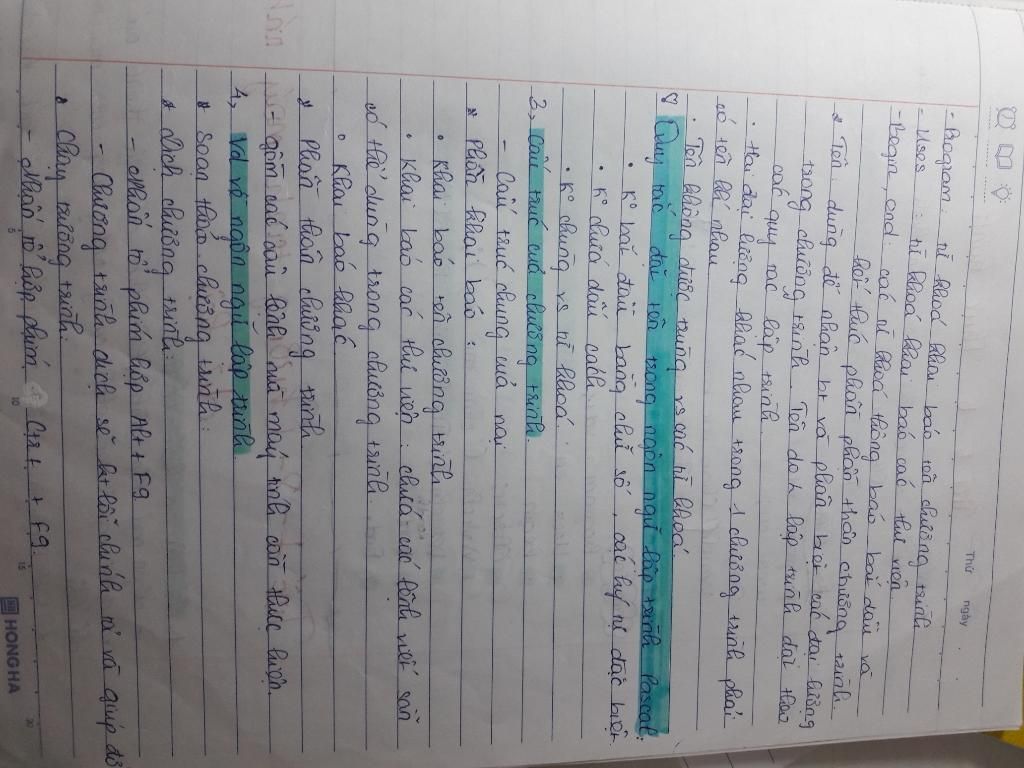 Thứ ngày
- Program: từ khoá khai báo tên chương trình
- Uses: từ khoá khai báo các thư viện
- Begin, end: các từ khoá thông báo bắt đầu và
kết thúc phần phần thân chương trình
* Tên dùng để nhận bt và phân biệt các đại lượng
trong chương trình. Tên do ng lập trình đặt theo
các quy tắc lập trình.
• Hai đại lượng khác nhau trong 1 chương trình phải
có tên # nhau
• Tên không được trùng vs các từ khoá
Quy tắc đặt tên trong ngôn ngữ lập trình Pascal:
• K° bắt đầu bằng chữ số, các ký tự đặc biệt
• K° chứa dấu cách
• K° trùng vs từ khoá.
3, Cấu trúc của chương trình
- Cấu trúc chung của mọi
* Phần khai báo:
• Khai báo tên chương trình
• Khai báo các thư viện: chứa các lệnh viết sẵn
có thể dùng trong chương trình
• Khai báo khác
* Phần thân chương trình
- gồm các câu lệnh mà máy tính cần thực hiện
4, Vd về ngôn ngữ lập trình
* Soạn thảo chương trình.
* Dịch chương trình:
- Nhấn tổ phím hợp Alt + F9
- Chương trình dịch sẽ kt lỗi chính tả và giúp đỡ
* Chạy chương trình.
- Nhấn tổ hợp phím Ctr + F9.
5 10 15 20
HONG HA